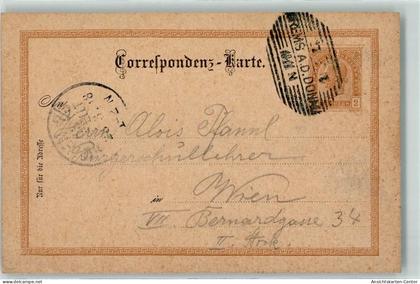 Correspondenz-Karte.
KREMS A.D. DONAU
An
Herrn Alois Pfannl
Bürgerschullehrer
Nur für die Adresse
in
Wien
VII Bernardgasse 34
II. Stock
2
Ansichtskarten-Center